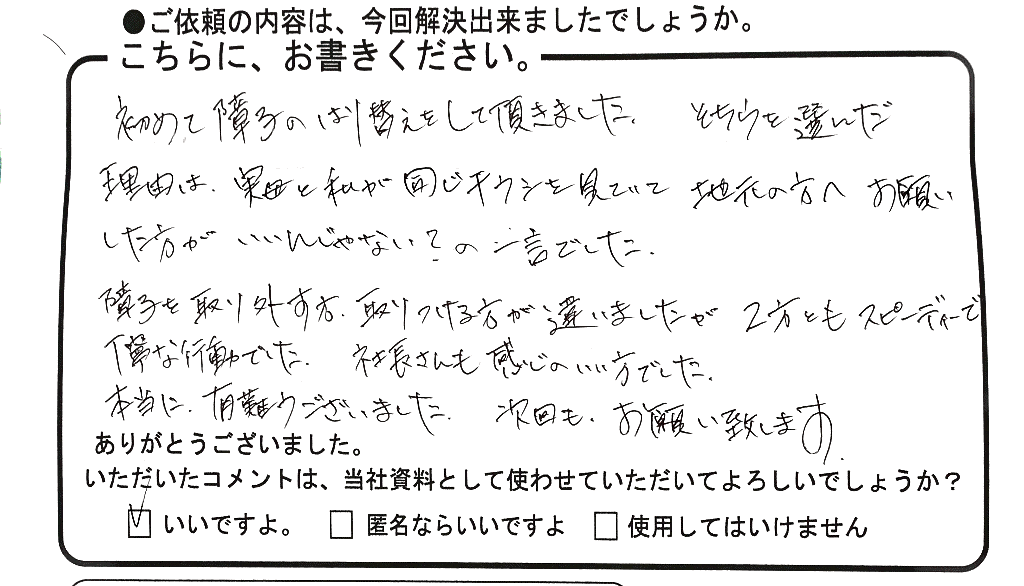 ●ご依頼の内容は、今回解決出来ましたでしょうか。
こちらに、お書きください。
初めて障子のはり替えをして頂きました。 そちらを選んだ
理由は、実母と私が同じチラシを見ていて 地元の方へ お願い
した方が いいんじゃない?の一言でした。
障子を取り外す方、取りつける方が違いましたが 2方ともスピーディーで
丁寧な行動でした。 社長さんも感じのいい方でした。
本当に、有難うございました。 次回も、お願い致します。
ありがとうございました。
いただいたコメントは、当社資料として使わせていただいてよろしいでしょうか?
☑ いいですよ。 □ 匿名ならいいですよ □ 使用してはいけません